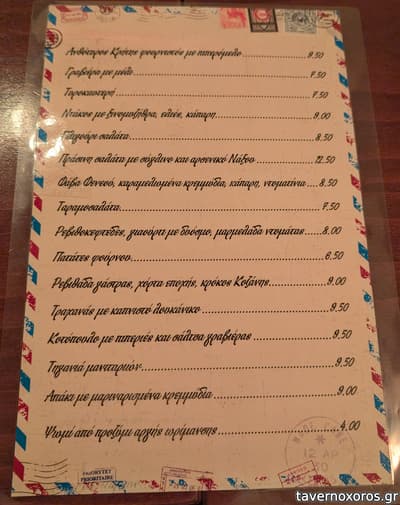 Ανθότυρος Κρήτης φουρνιστός με πιπερόμελο 9.50
Γραβιέρα με μέλι 7.50
Τυροκαυτερή 7.50
Ντάκος με ξινομυζήθρα, ελιές, κάπαρη 9.00
Πλιγούρι σαλάτα 8.50
Πράσινη σαλάτα με σύγλινο και αρσενικό Νάξου 12.50
Φάβα Φενεού, καραμελωμένα κρεμμύδια, κάπαρη, ντοματίνια 8.50
Ταραμοσαλάτα 7.50
Ρεβιθοκεφτέδες, γιαούρτι με δυόσμο, μαρμελάδα ντομάτας 8.00
Πατάτες φούρνου 6.50
Ρεβιθάδα γάστρας, χόρτα εποχής, κρόκος Κοζάνης 9.00
Τραχανάς με καπνιστό λουκάνικο 9.50
Κοτόπουλο με πιπεριές και σάλτσα γραβιέρας 9.50
Τηγανιά μανιταριών 9.50
Απάκι με μαριναρισμένα κρεμμύδια 9.00
Ψωμί από προζύμι αργής ωρίμανσης 4.00
12 ΑΡ
PRIORITY
PRIORITAIRE
tavernoxoros.gr